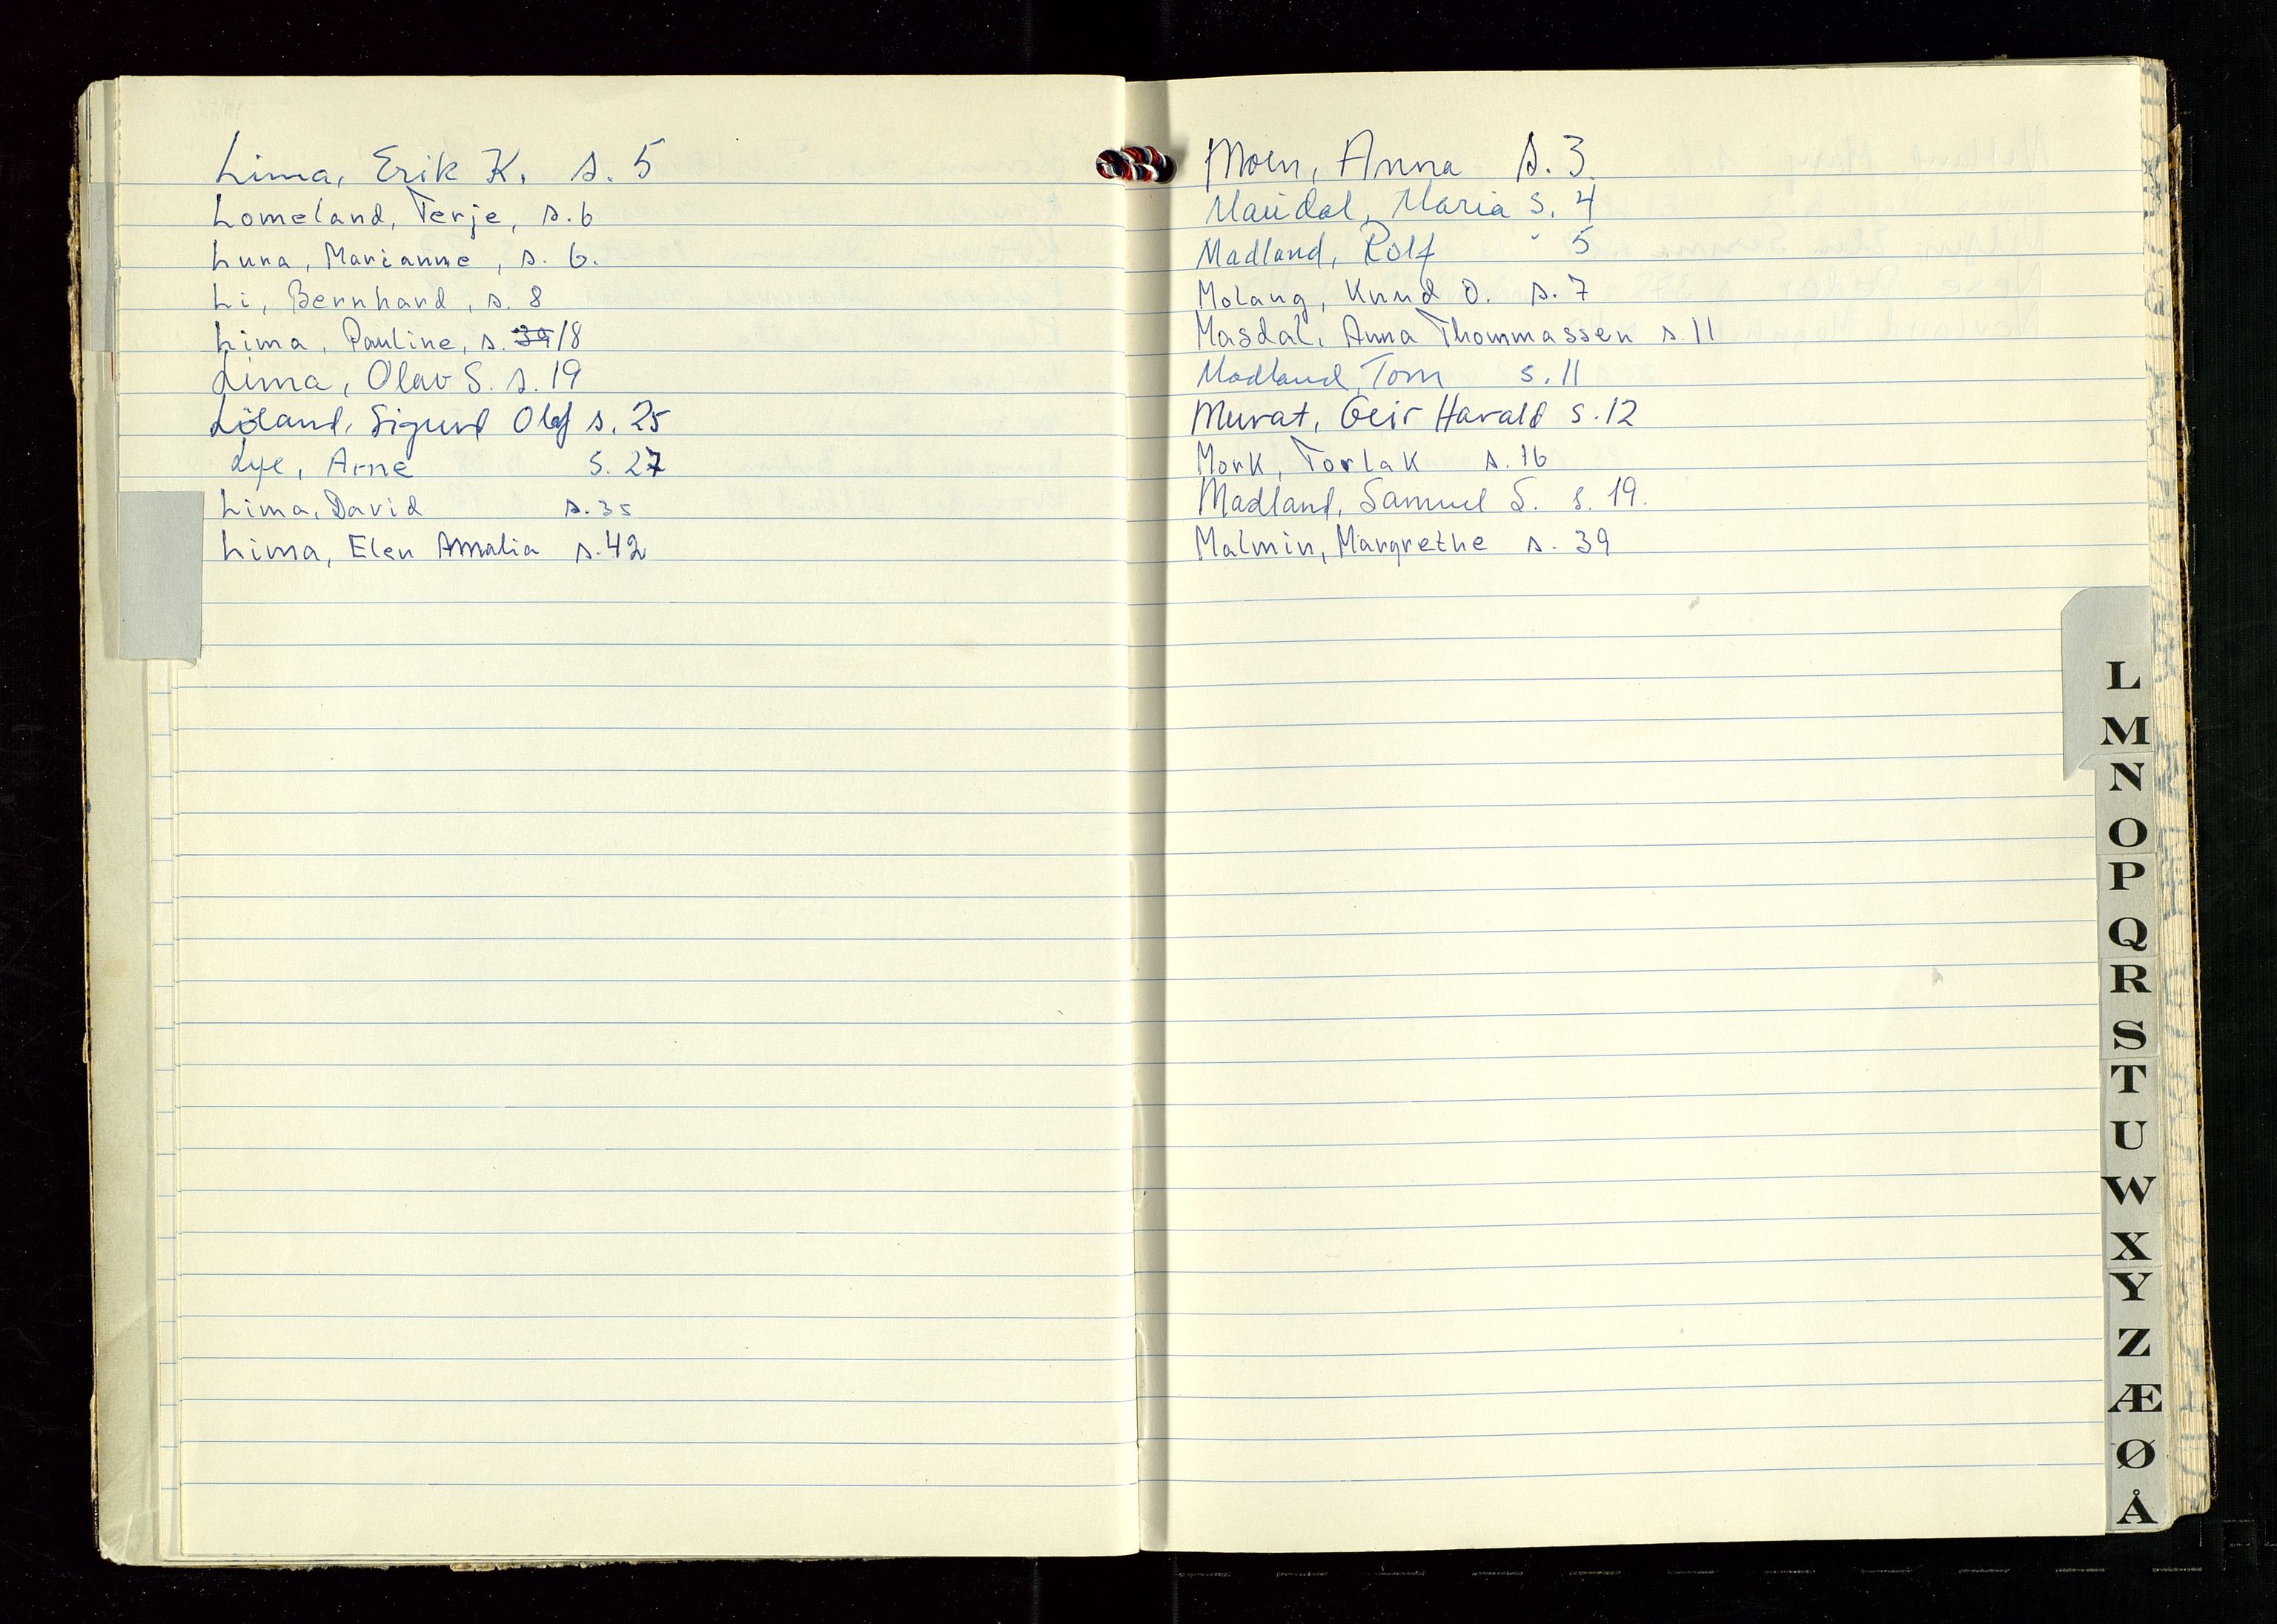 Lima, Erik K. s. 5
Lomeland, Terje, s. 6
Luna, Marianne, s. 6.
Li, Bernhard, s. 8
Lima, Pauline, s. 39 18
Lima, Olav S. s. 19
Löland, Sigurd Olaf s. 25
Lye, Arne s. 27
Lima, David s. 35
Lima, Elen Amalia s. 42
Moen, Anna s. 3.
Maudal, Maria s. 4
Madland, Rolf " 5
Molaug, Knud O. s. 7
Masdal, Anna Thommassen s. 11
Madland, Tom s. 11
Murat, Geir Harald s. 12
Mork, Torlak s. 16
Madland, Samuel S. s. 19.
Malmin, Margrethe s. 39
L
M
N
O
P
Q
R
S
T
U
W
X
Y
Z
Æ
Ø
Å